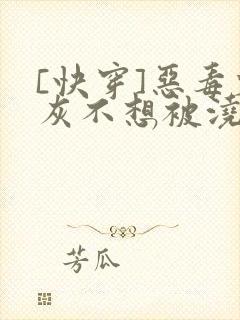 [快穿]惡毒
灰不想被澆
芳瓜